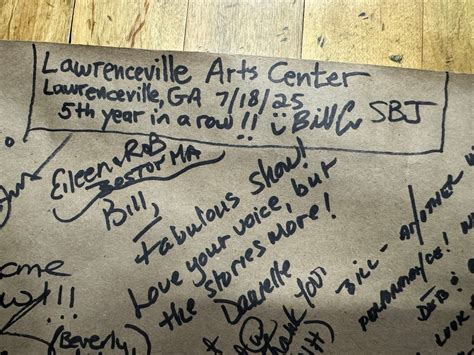 Lawrenceville Arts Center
Lawrenceville, GA 7/18/25
5th year in a row!! Bill SBJ
Eileen & Rob
Bill,
Fabulous show!
Love your voice, but
the stories more!
Danielle
Thank You!
BILL - ANOTHER
PERFORMANCE!
LOOK
(Beverly